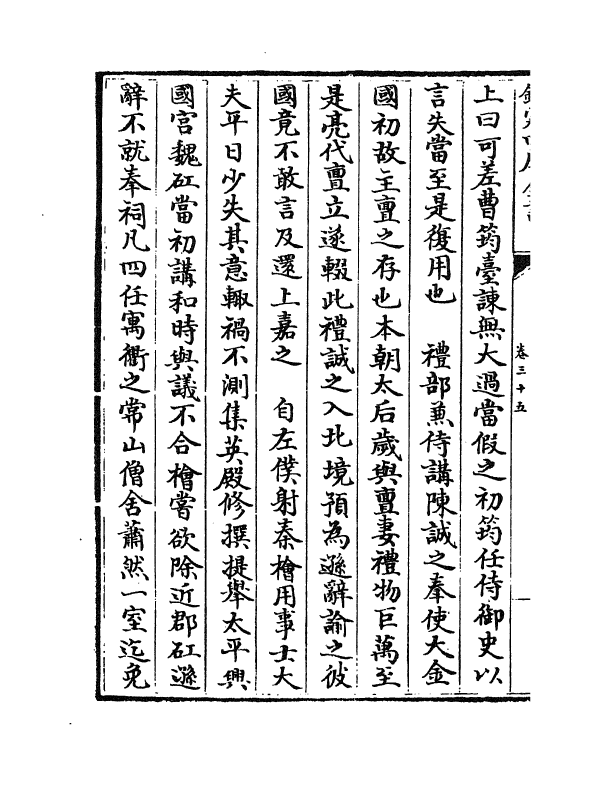 欽定四庫全書
卷三十五
上曰可差曹筠臺諫無大過當假之初筠任侍御史以
言失當至是復用也　禮部兼侍講陳誠之奉使大金
國初故主亶之存也本朝太后歲與亶妻禮物巨萬至
是亮代亶立遂輟此禮誠之入北境預為遜辭諭之彼
國竟不敢言及還上嘉之　自左僕射秦檜用事士大
夫平日少失其意輙禍不測集英殿修撰提舉太平興
國宫魏矼當初講和時與議不合檜嘗欲除近郡矼遜
辭不就奉祠凡四任寓衢之常山僧舍蕭然一室迄免